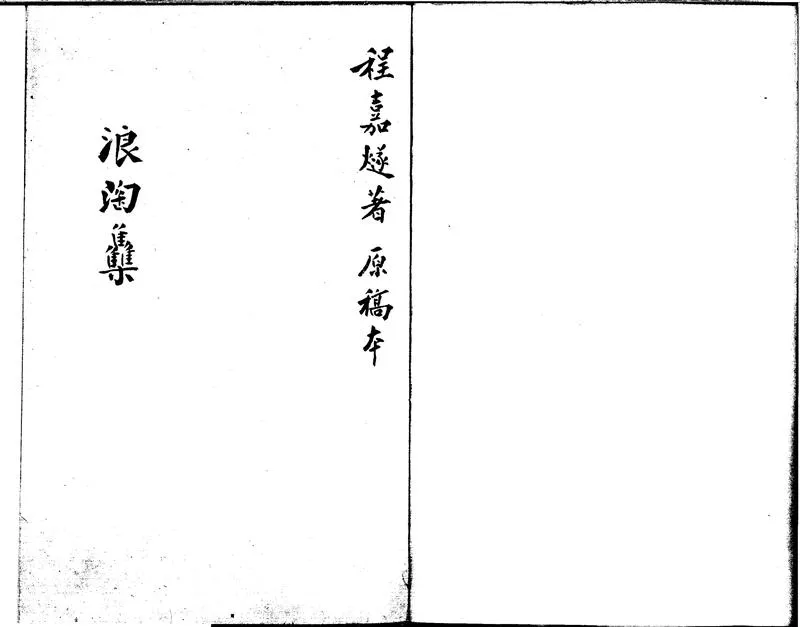 程嘉燧著 原稿本
浪淘雧